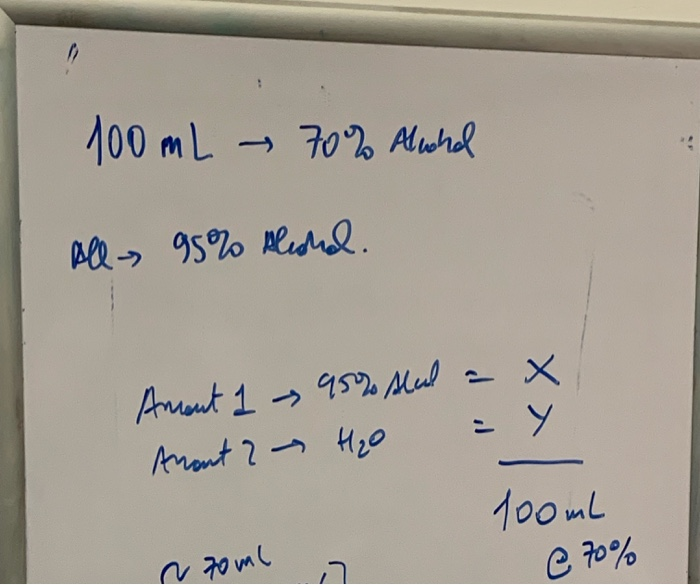 100 mL → 70% Alcohol
All → 95% Alcohol.
Amount 1 → 95% Alcol = X
Amount 2 → H2O = Y
100 mL
@ 70%
~ 70 mL